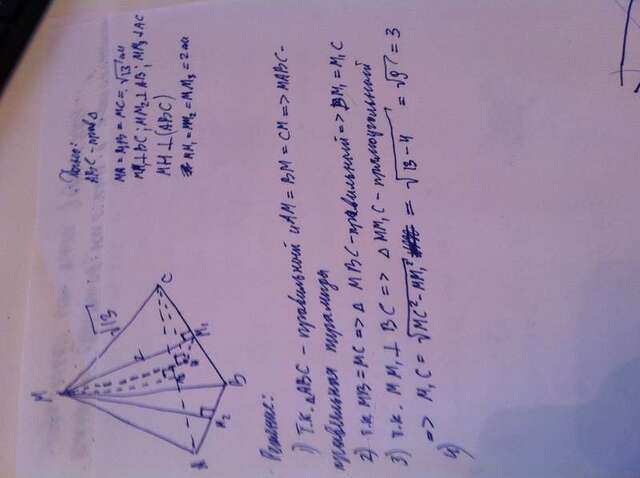 Дано:
ABC - прав Δ
MA = MB = MC = √13 см
MM₁⊥BC; MM₂⊥AB; MM₃⊥AC
MH ⊥ (ABC)
MM₁ = MM₂ = MM₃ = 2 см
M
√13
2
C
M₁
B
M₂
A
Решение:
1) Т.к. ΔABC - правильный и AM = BM = CM => MABC -
правильная пирамида
2) т.к MB = MC => Δ MBC - правильный => BM₁ = M₁C
3) т.к. MM₁ ⊥ BC => Δ MM₁C - прямоугольный
=> M₁C = √MC² - MM₁² = √13 - 4 = √9 = 3
4)